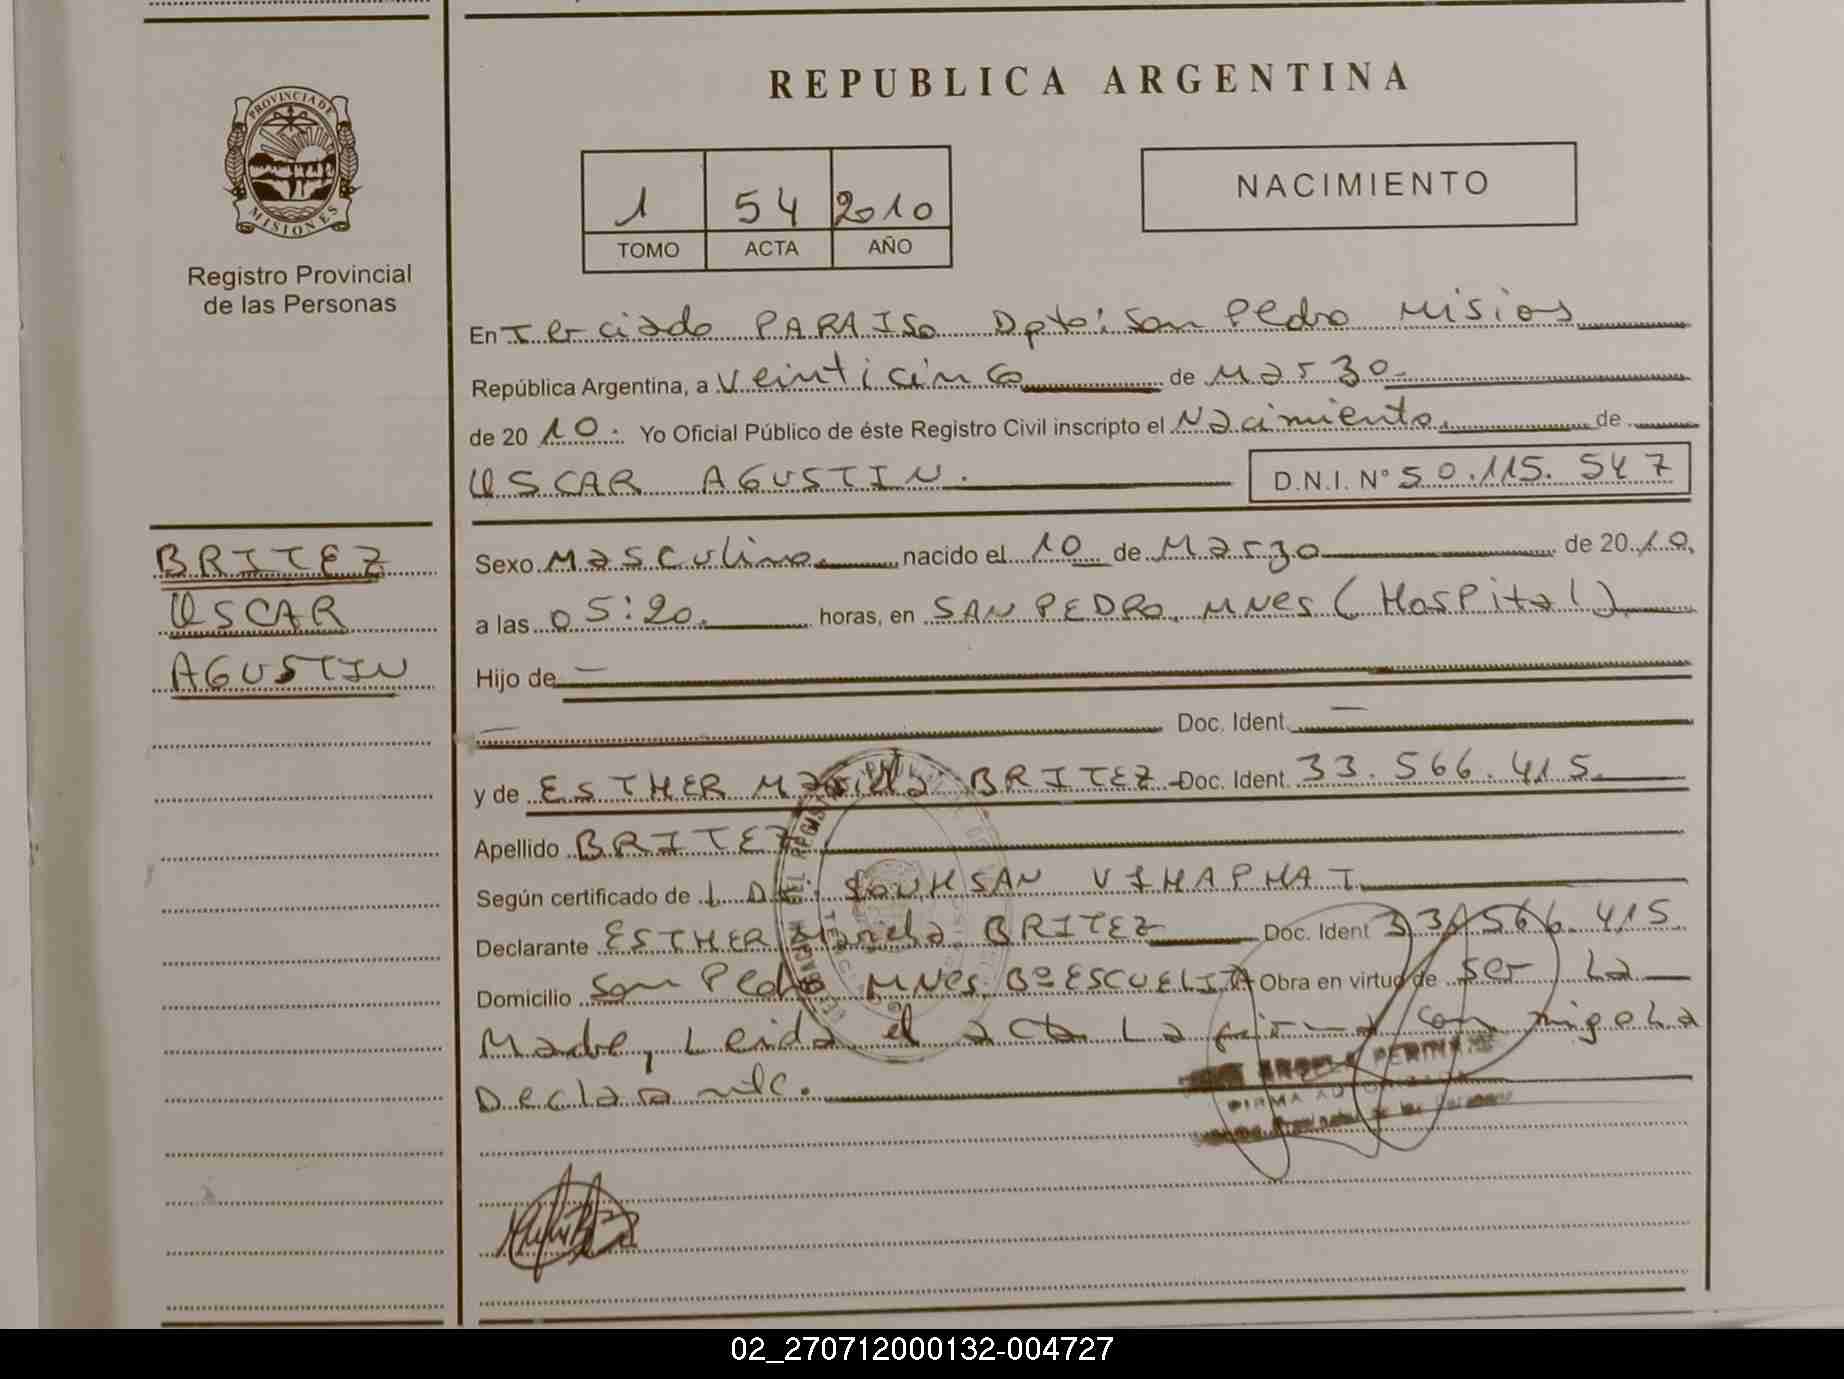 REPUBLICA ARGENTINA
PROVINCIA DE
MISIONES
Registro Provincial
de las Personas
1 54 2010
TOMO ACTA AÑO
NACIMIENTO
En Terciado PARAISO Dpto: San Pedro Misios
República Argentina, a veinticinco de Marzo.
de 20 10. Yo Oficial Público de éste Registro Civil inscripto el Nacimiento de
OSCAR AGUSTIN. D.N.I. Nº 50.115.547
BRITEZ
OSCAR
AGUSTIN
Sexo Masculino. nacido el 10 de Marzo de 20 10,
a las 05:20. horas, en SAN PEDRO, MNES (Hospital)
Hijo de —
— Doc. Ident. —
y de ESTHER Mariela BRITEZ Doc. Ident. 33.566.415
Apellido BRITEZ
Según certificado de L D VIHAPHAT
Declarante ESTHER Mariela BRITEZ Doc. Ident 33.566.415
Domicilio San Pedro MNES. Bº ESCUELITA Obra en virtud de ser La
Madre, Leida el acta La firma con migo La
Declarante.
FIRMA
02_270712000132-004727